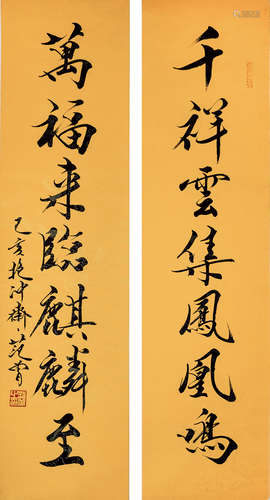 千祥雲集鳳凰鳴
萬福来臨麒麟至
乙亥抱冲齋范曾